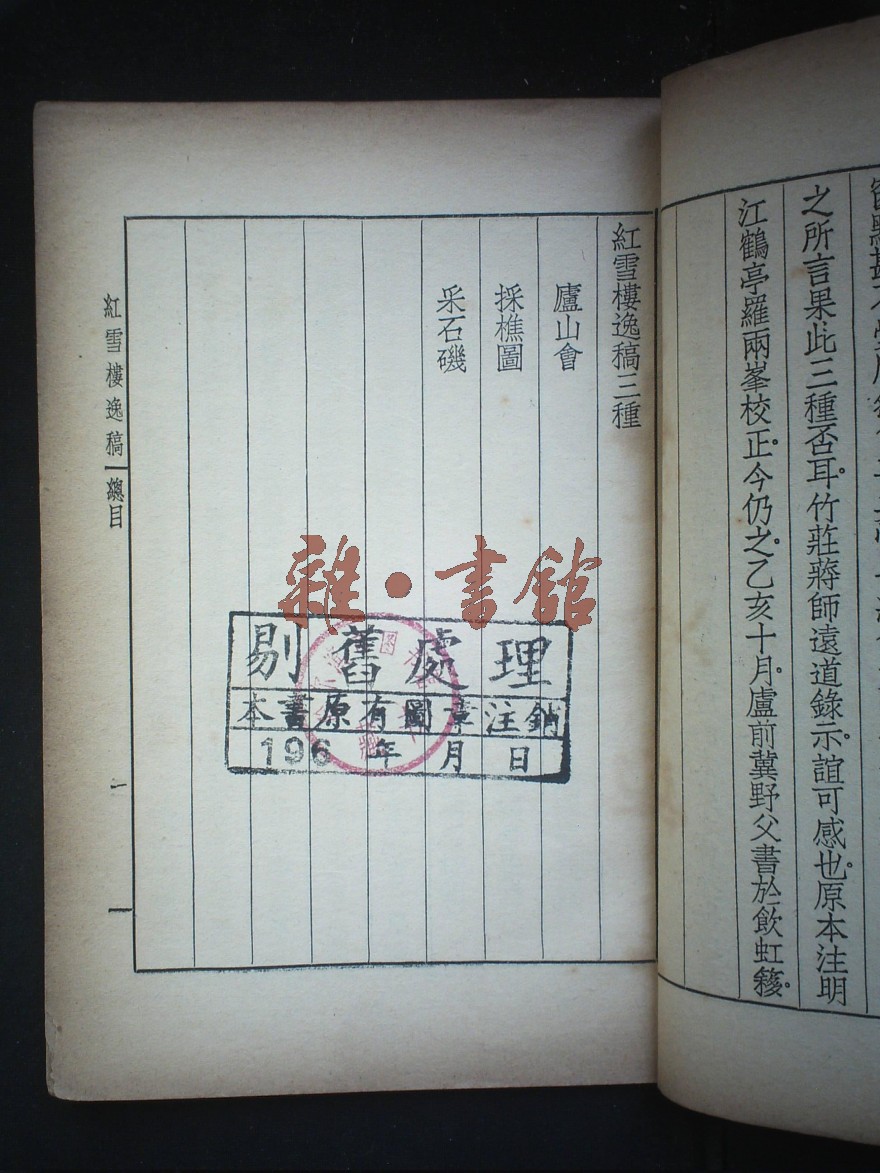 之所言果此三種否耳。竹莊蔣師遠道錄示。誼可感也。原本注明
江鶴亭羅兩峯校正。今仍之。乙亥十月。盧前冀野父書於飲虹簃。
紅雪樓逸稿三種
廬山會
採樵圖
采石磯
紅雪樓逸稿
總目
一
雜·書館
剔舊處理
本書原有圖章注銷
196 年 月 日